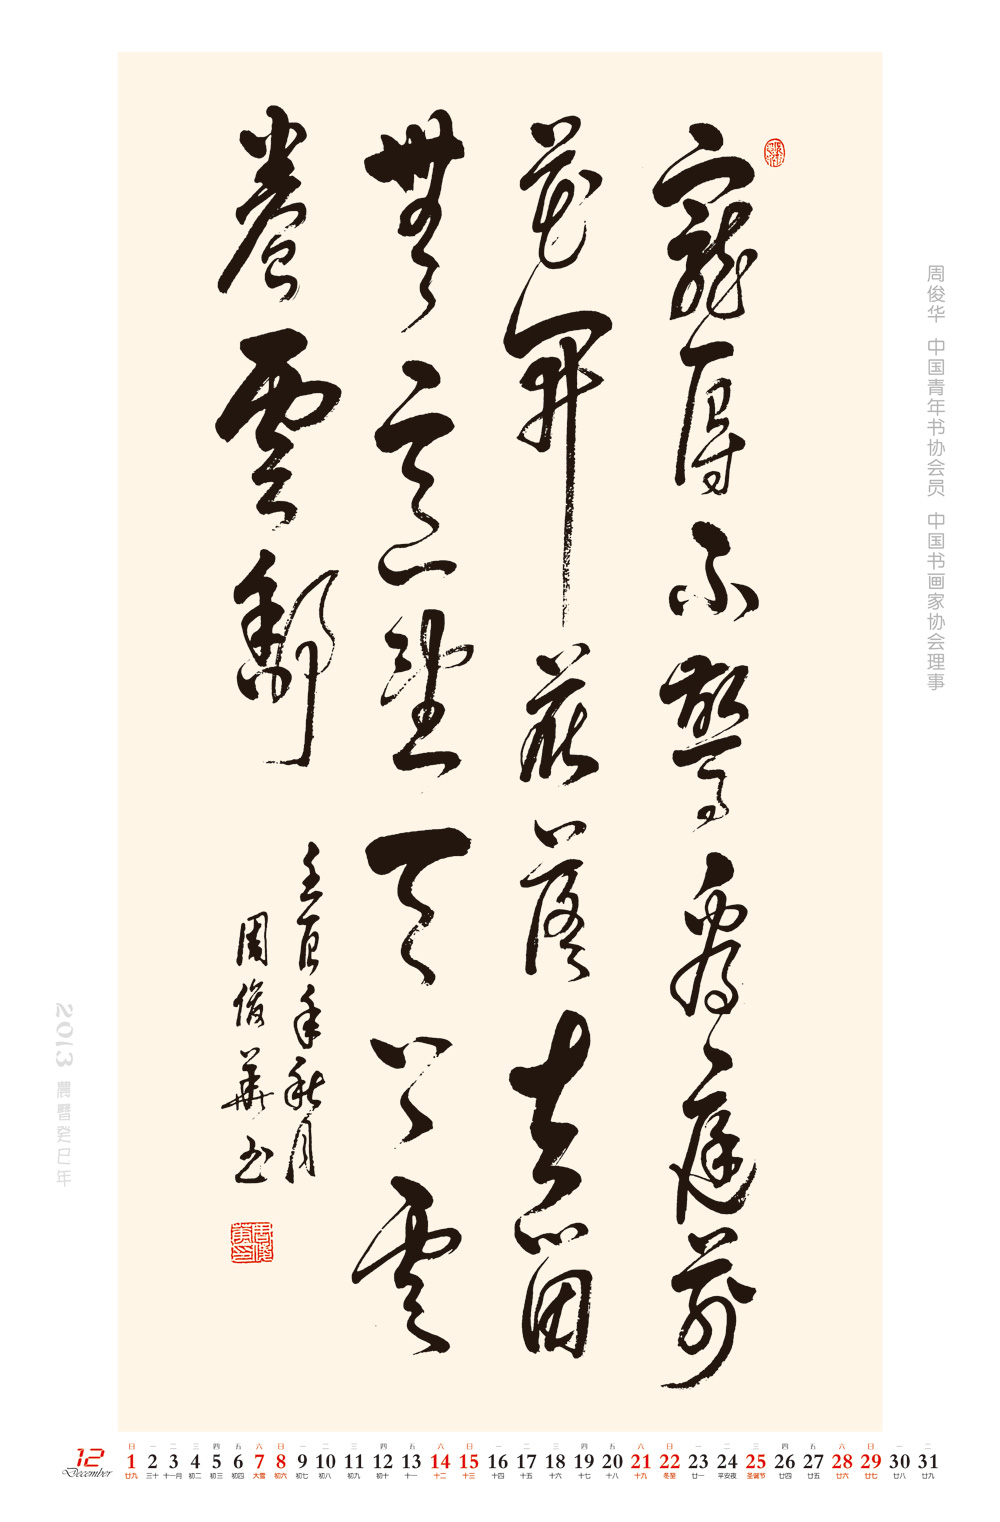 寵辱不驚看庭前
花開花落去留
無意望天外雲
卷雲舒
壬辰年秋月
周俊華書
周俊华 中国青年书协会员 中国书画家协会理事
2013 農曆癸巳年
12
December
日 一 二 三 四 五 六 日 一 二 三 四 五 六 日 一 二 三 四 五 六 日 一 二 三 四 五 六 日 一 二
1 2 3 4 5 6 7 8 9 10 11 12 13 14 15 16 17 18 19 20 21 22 23 24 25 26 27 28 29 30 31
廿九 三十 十一月 初二 初三 初四 大雪 初六 初七 初八 初九 初十 十一 十二 十三 十四 十五 十六 十七 十八 十九 冬至 廿一 平安夜 圣诞节 廿四 廿五 廿六 廿七 廿八 廿九